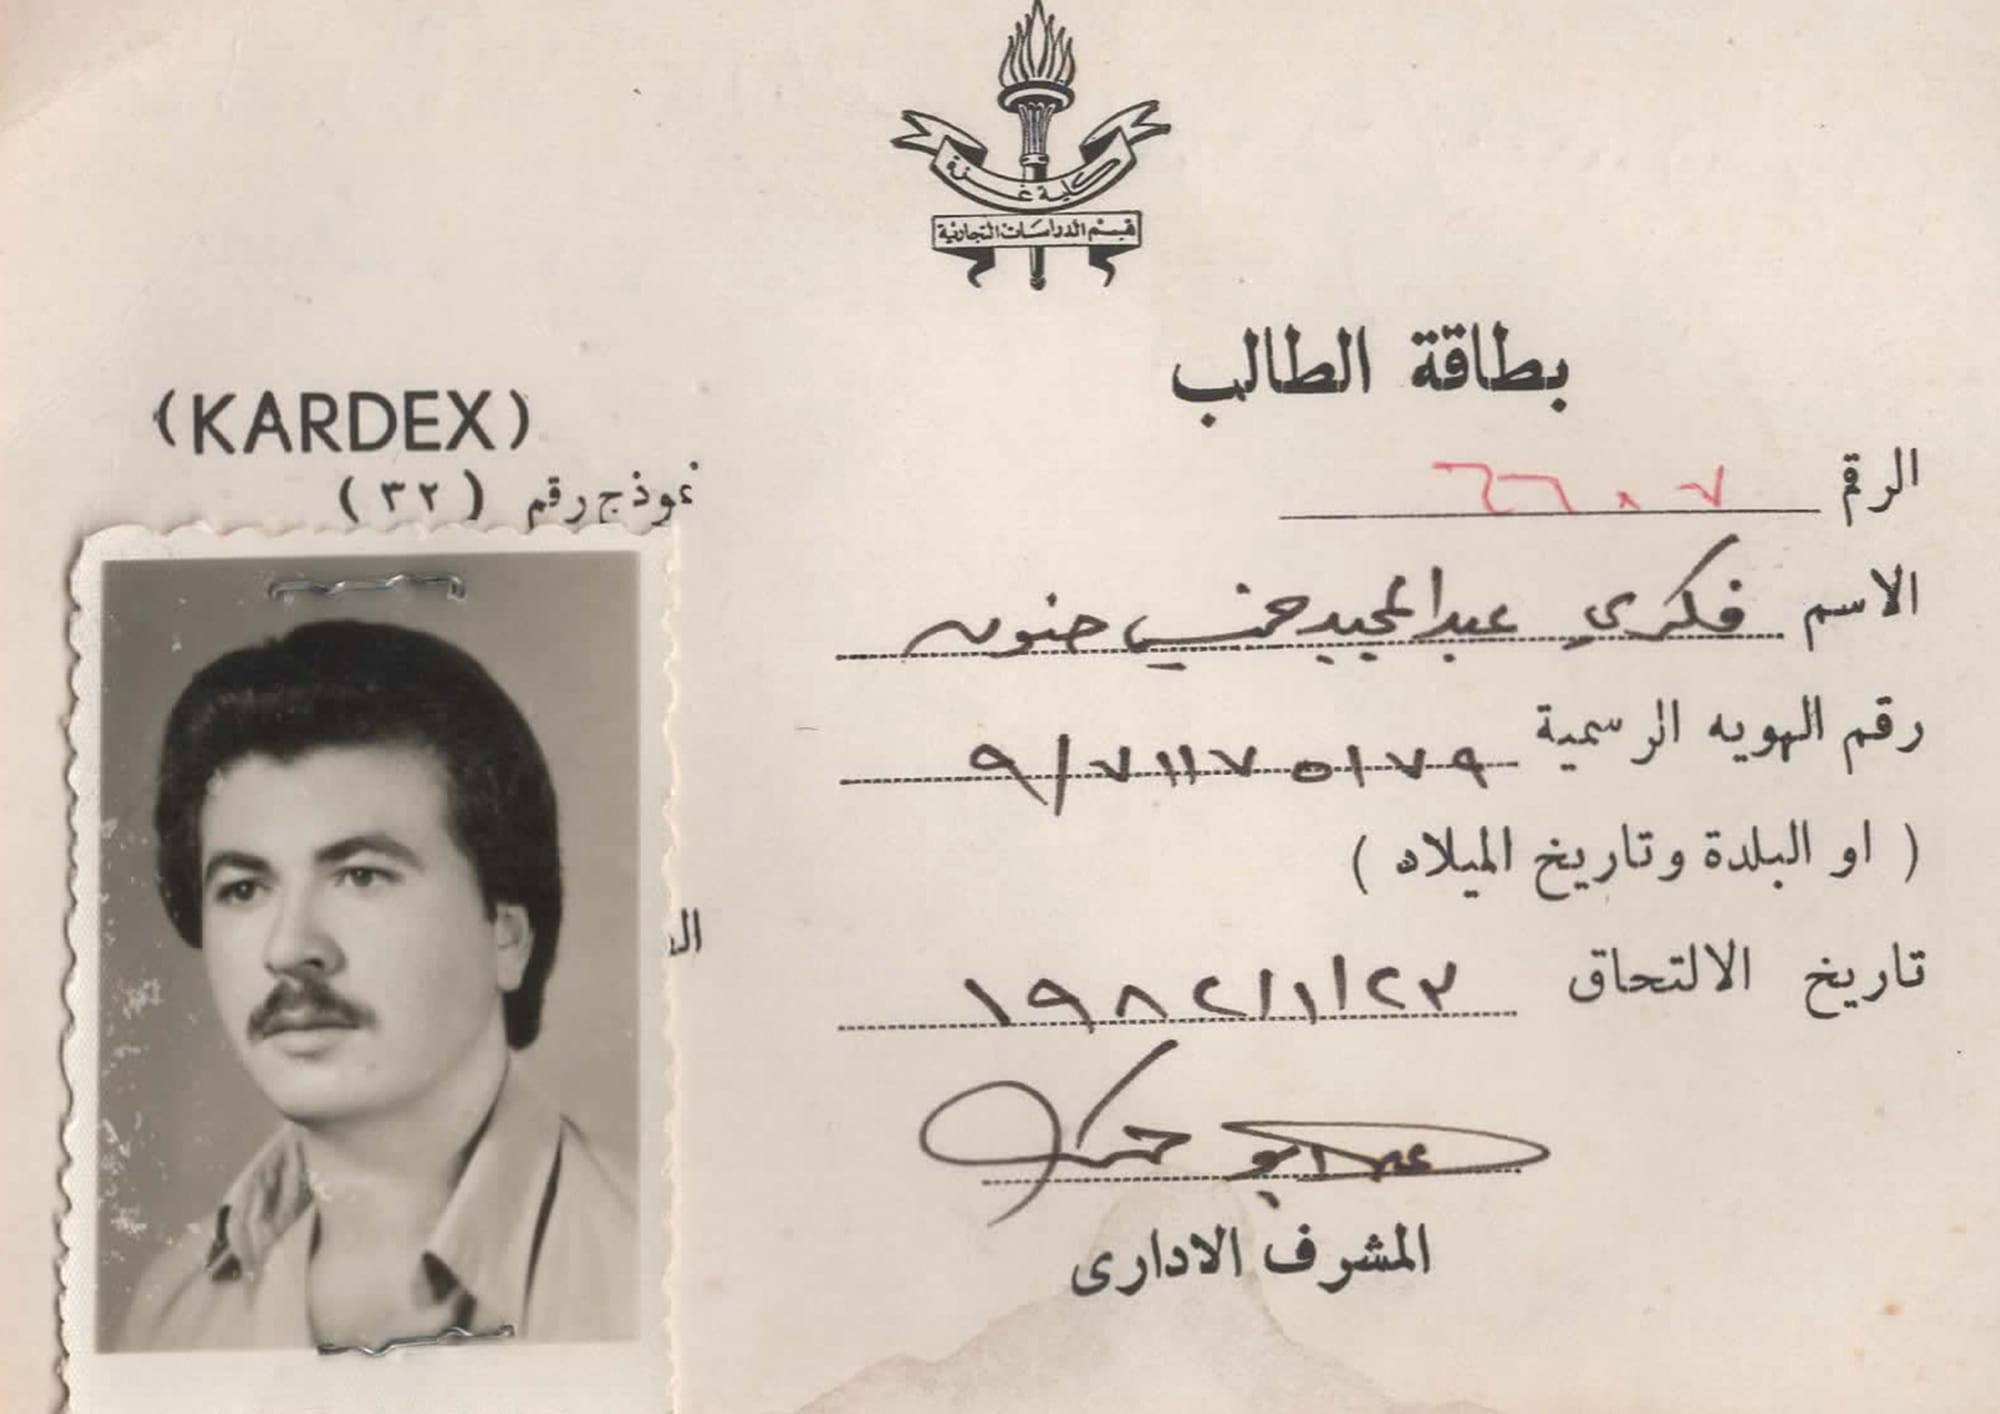 كلية غزة
قسم الدراسات التجارية
بطاقة الطالب
(KARDEX)
نموذج رقم ( ٣٢ )
الرقم ٦٦٠٧
الاسم فكري عبدالمجيد حنون
رقم الهويه الرسمية ٩/٧١١٧٥١٧٩
( او البلدة وتاريخ الميلاد )
تاريخ الالتحاق ١٩٨٢/١/٢٣
المشرف الادارى